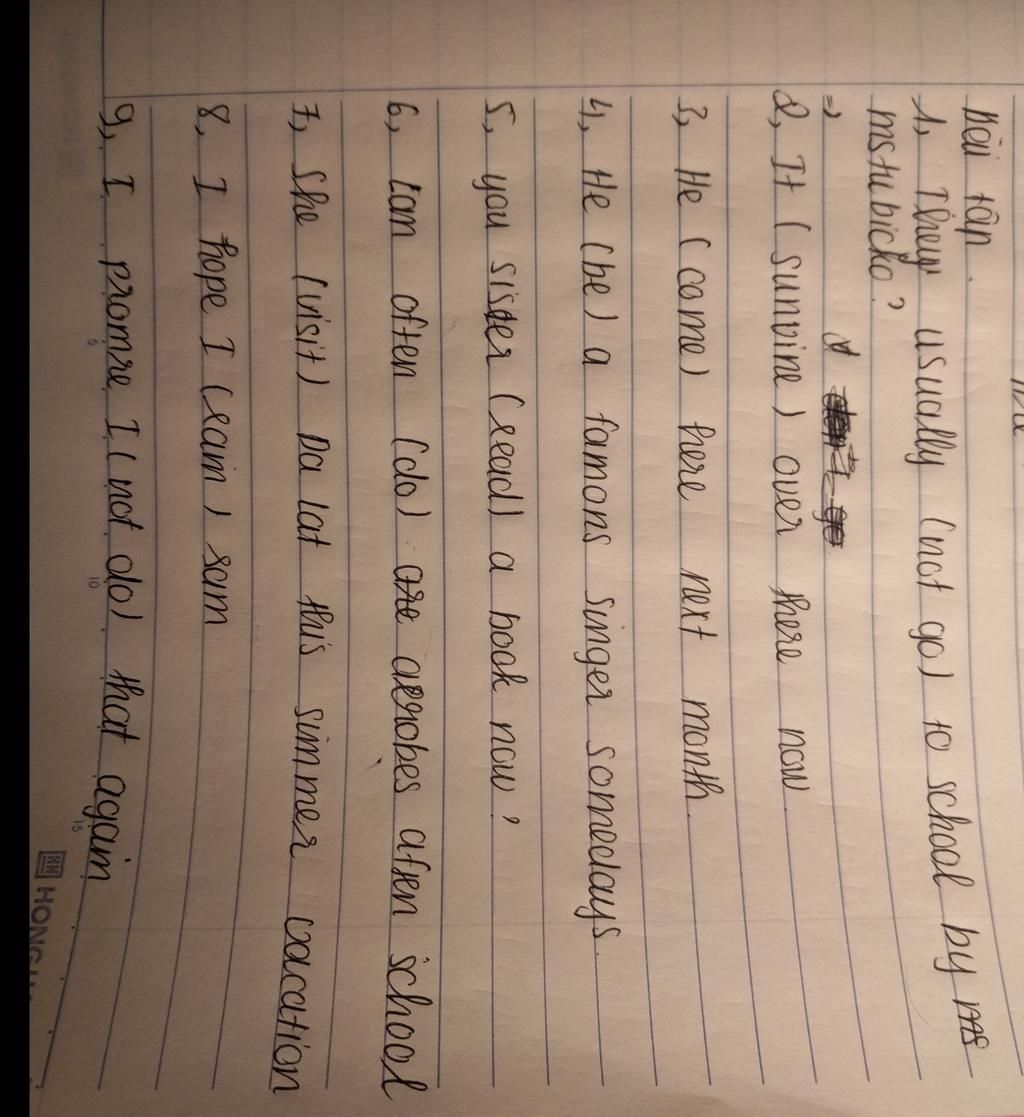 Bài tập.
1, They usually (not go) to school by ms
mstubicko?
=>
2, It (sunvine) over there now
3, He (come) here next month.
4, He (be) a famons singer somedays
5, you sister (read) a book now?
6, Lan often (do) are aerobes aften school
7, She (visit) Da lat this simmer vacation
8, I hope I (eain) sam
9, I promire I (not do) that again
5
10
15
HONG